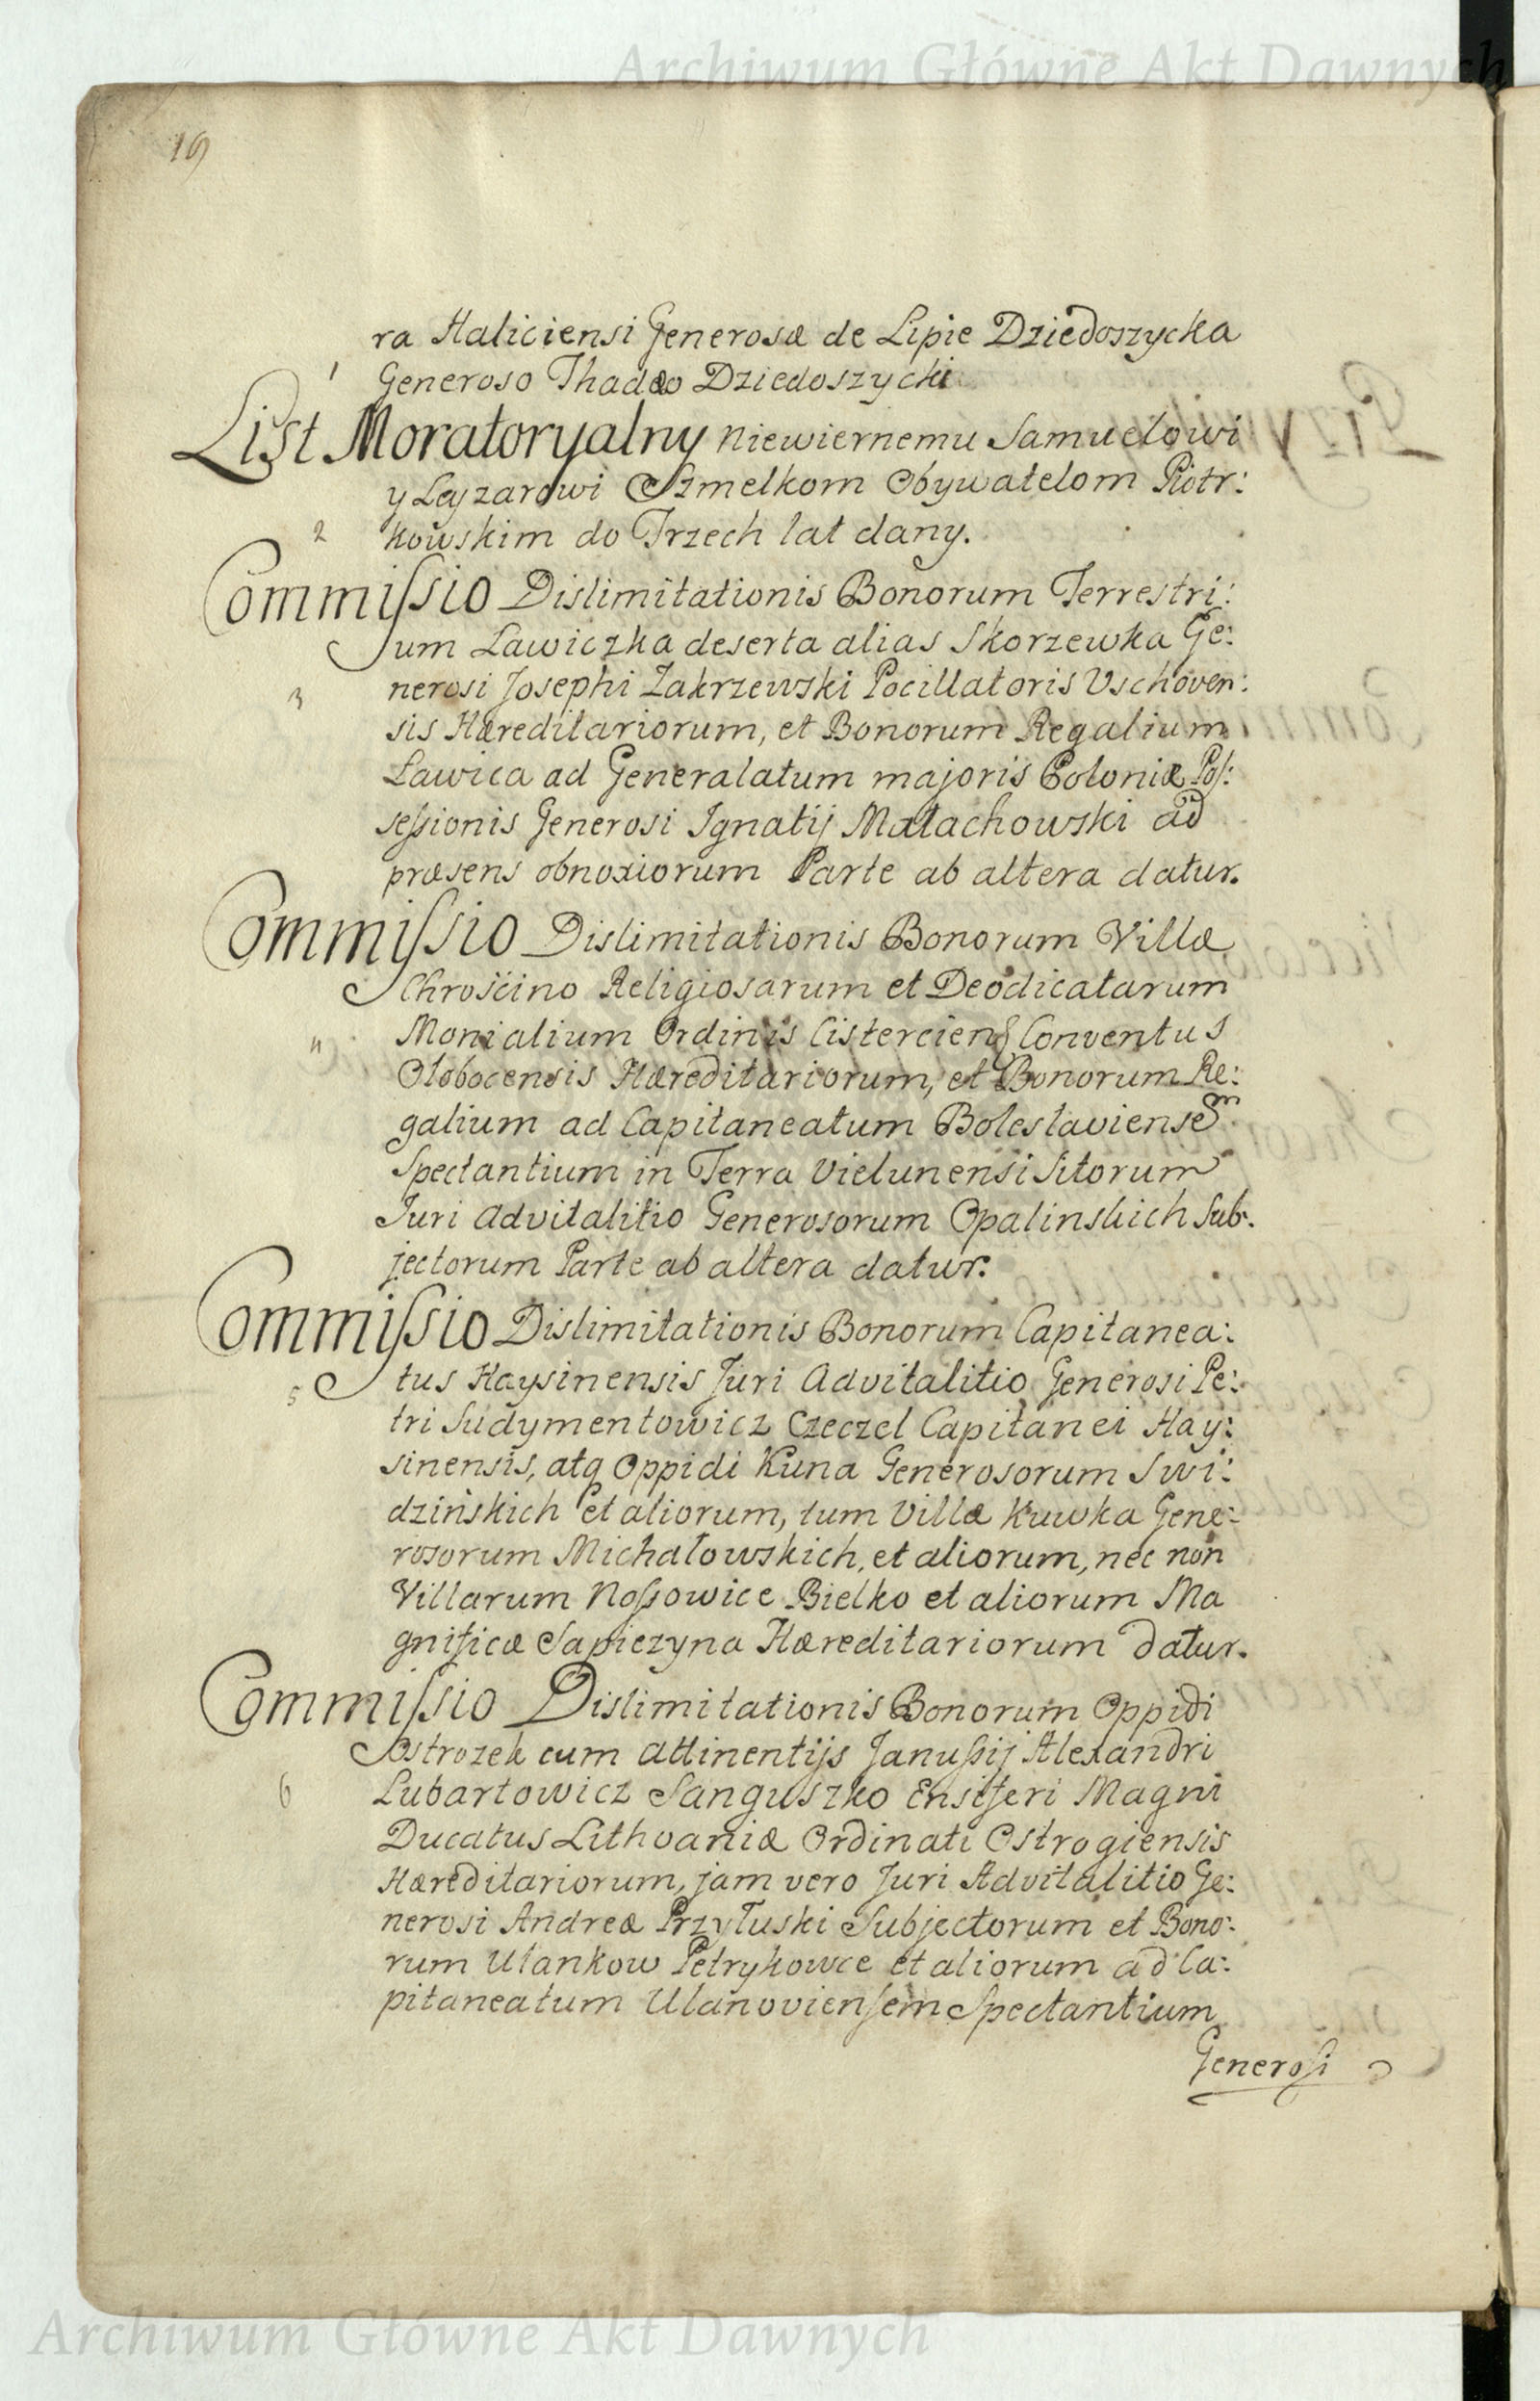 Archiwum Główne Akt Dawnych
19
ra Haliciensi Generosæ de Lipie Dziedoszycka
1
Generoso Thadæo Dziedoszycki
List Moratoryalny niewiernemu Samuelowi
y Leyzarowi Szmelkom Obywatelom Piotr:
2
kowskim do Trzech lat dany.
Commissio Dislimitationis Bonorum Terrestri:
um Lawiczka deserta alias Skorzewka Ge:
3
nerosi Josephi Zakrzewski Pocillatoris Vschoven:
sis Hæreditariorum, et Bonorum Regalium
Lawica ad Generalatum majoris Poloniæ Pos:
sessionis Generosi Ignatij Małachowski ad
præsens obnoxiorum Parte ab altera datur.
Commissio Dislimitationis Bonorum Villæ
Chrościno Religiosarum et Deodicatarum
4
Monialium Ordinis Cistercien Conventus
Ołobocensis Hæreditariorum, et Bonorum Re:
galium ad Capitaneatum Boleslaviensem
Spectantium in Terra Vielunensi Sitorum
Juri Advitalitio Generosorum Opalinskich Sub:
jectorum Parte ab altera datur.
Commissio Dislimitationis Bonorum Capitanea:
5
tus Haysinensis Juri Advitalitio Generosi Pe:
tri Sudymentowicz Czeczel Capitanei Hay:
sinensis, atq Oppidi Kuna Generosorum Swi:
dzińskich et aliorum, tum Villæ Kuwka Gene:
rosorum Michałowskich, et aliorum, nec non
Villarum Nossowice Bielko et aliorum Ma
gnificæ Sapiezyna Hæreditariorum datur.
Commissio Dislimitationis Bonorum Oppidi
Ostrozek cum attinentijs Janussij Alexandri
6
Lubartowicz Sanguszko Ensiferi Magni
Ducatus Lithvaniæ Ordinati Ostrogiensis
Hæreditariorum, jam vero Juri Advitalitio Ge:
nerosi Andreæ Przyłuski Subjectorum et Bono:
rum Ulankow Petrykowce et aliorum ad Ca:
pitaneatum Ulanoviensem Spectantium
Generosi
Archiwum Główne Akt Dawnych